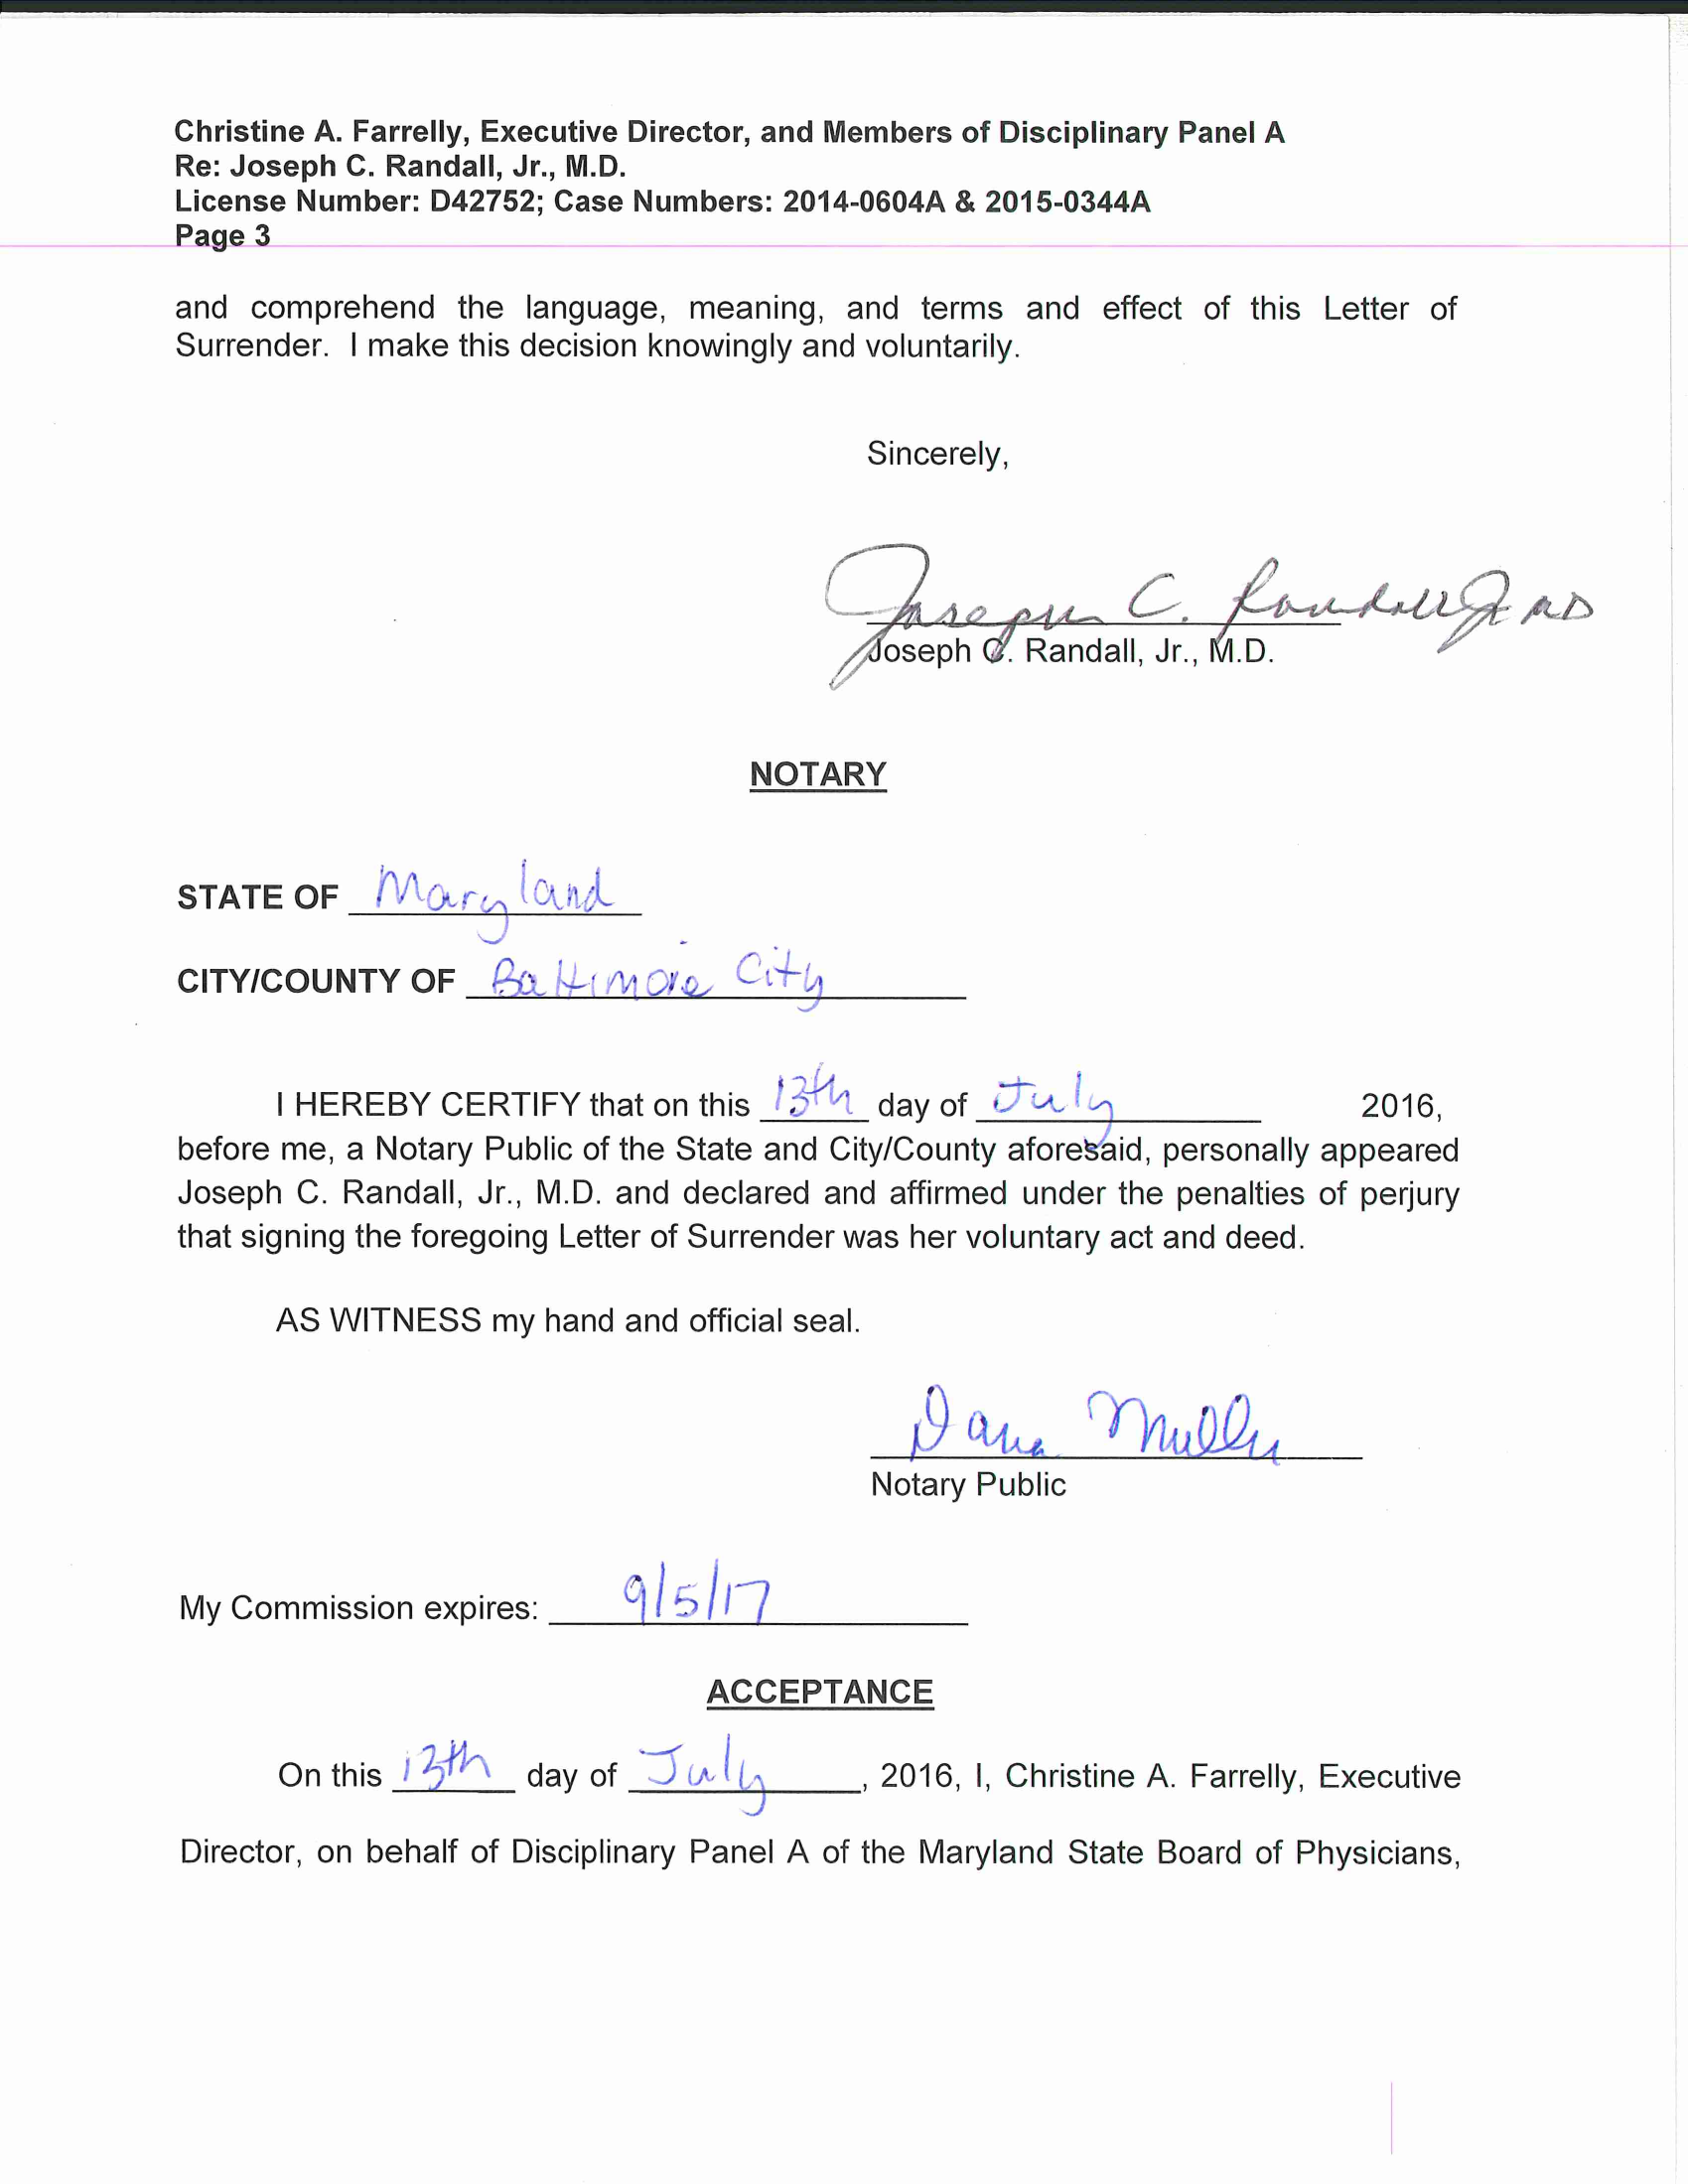 Christine A. Farrelly, Executive Director, and Members of Disciplinary Panel A
Re: Joseph C. Randall, Jr., M.D.
License Number: D42752; Case Numbers: 2014-0604A & 2015-0344A
Page 3
and comprehend the language, meaning, and terms and effect of this Letter of
Surrender. I make this decision knowingly and voluntarily.
Sincerely,
Joseph C. Randall Jr MD
Joseph C. Randall, Jr., M.D.
NOTARY
STATE OF Maryland
CITY/COUNTY OF Baltimore City
I HEREBY CERTIFY that on this 13th day of July 2016,
before me, a Notary Public of the State and City/County aforesaid, personally appeared
Joseph C. Randall, Jr., M.D. and declared and affirmed under the penalties of perjury
that signing the foregoing Letter of Surrender was her voluntary act and deed.
AS WITNESS my hand and official seal.
Dana
Notary Public
My Commission expires: 9/5/17
ACCEPTANCE
On this 13th day of July, 2016, I, Christine A. Farrelly, Executive
Director, on behalf of Disciplinary Panel A of the Maryland State Board of Physicians,